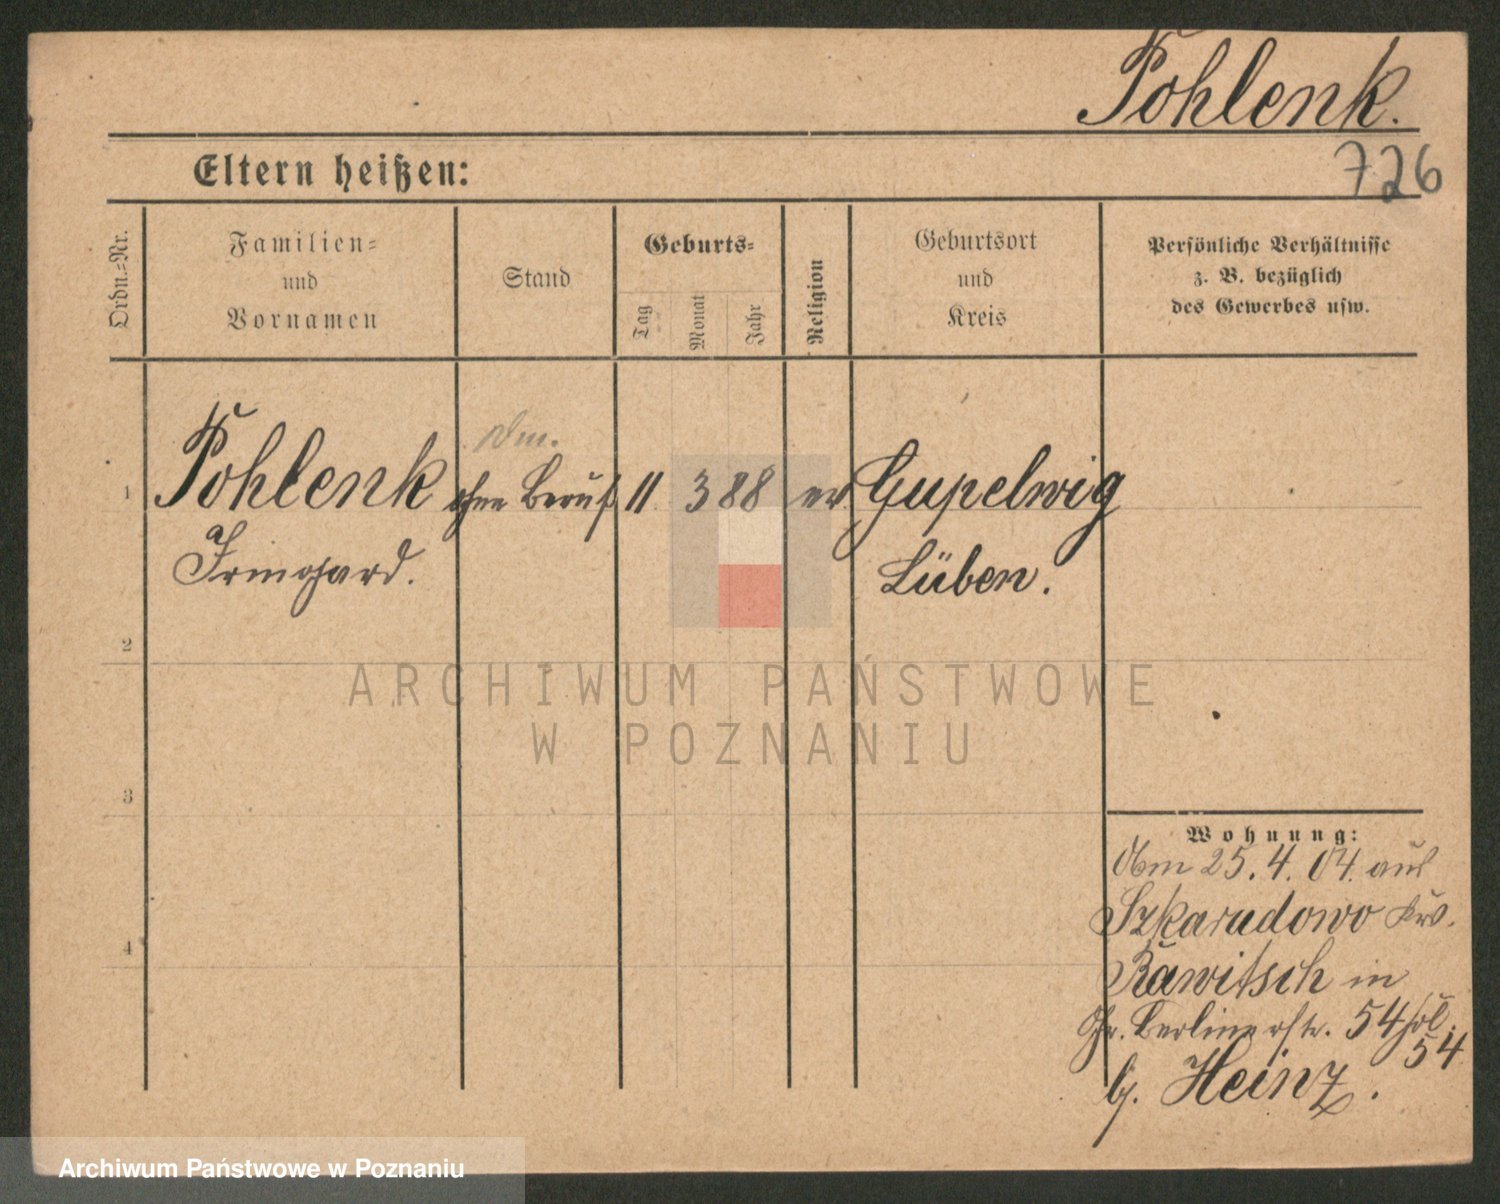 Pohlenk.
726
Eltern heißen:
Ordn.=Nr.
Familien=
und
Vornamen
Stand
Geburts=
Tag
Monat
Jahr
Religion
Geburtsort
und
Kreis
Persönliche Verhältnisse
z. B. bezüglich
des Gewerbes usw.
1 Pohlenk ohne Beruf 11 3 88 ev Gupelwig
Irmgard. Lüben.
2
3
4
Wohnung:
Am 25.4.04. aus
Szkaradowo Krs.
Rawitsch in
Berlinerstr. 54
54
b. Heinz.
ARCHIWUM PAŃSTWOWE
W POZNANIU
Archiwum Państwowe w Poznaniu